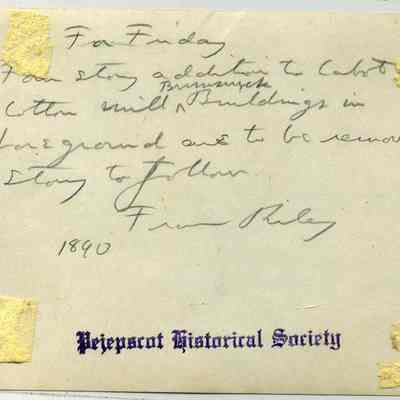 For Friday
Four story addition to Cabot
Brunswick
Cotton Mill ^ Buildings in
foreground are to be remov
Story to follow
From Riley
1890
Pejepscot Historical Society